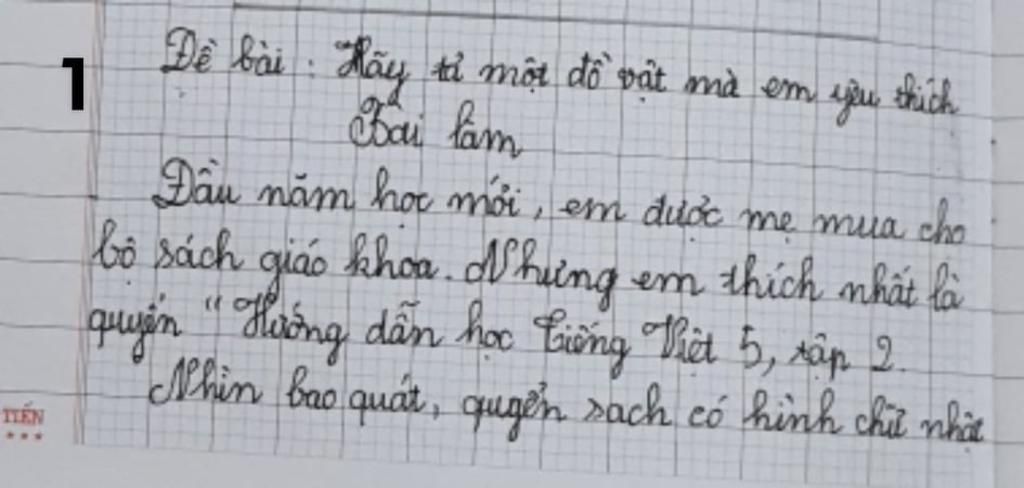 1
Đề bài : Hãy tả một đồ vật mà em yêu thích
Bài làm
Đầu năm học mới, em được mẹ mua cho
bộ sách giáo khoa. Nhưng em thích nhất là
quyển " Hướng dẫn học Tiếng Việt 5, tập 2.
Nhìn bao quát, quyển sach có hình chữ nhật
TIẾN